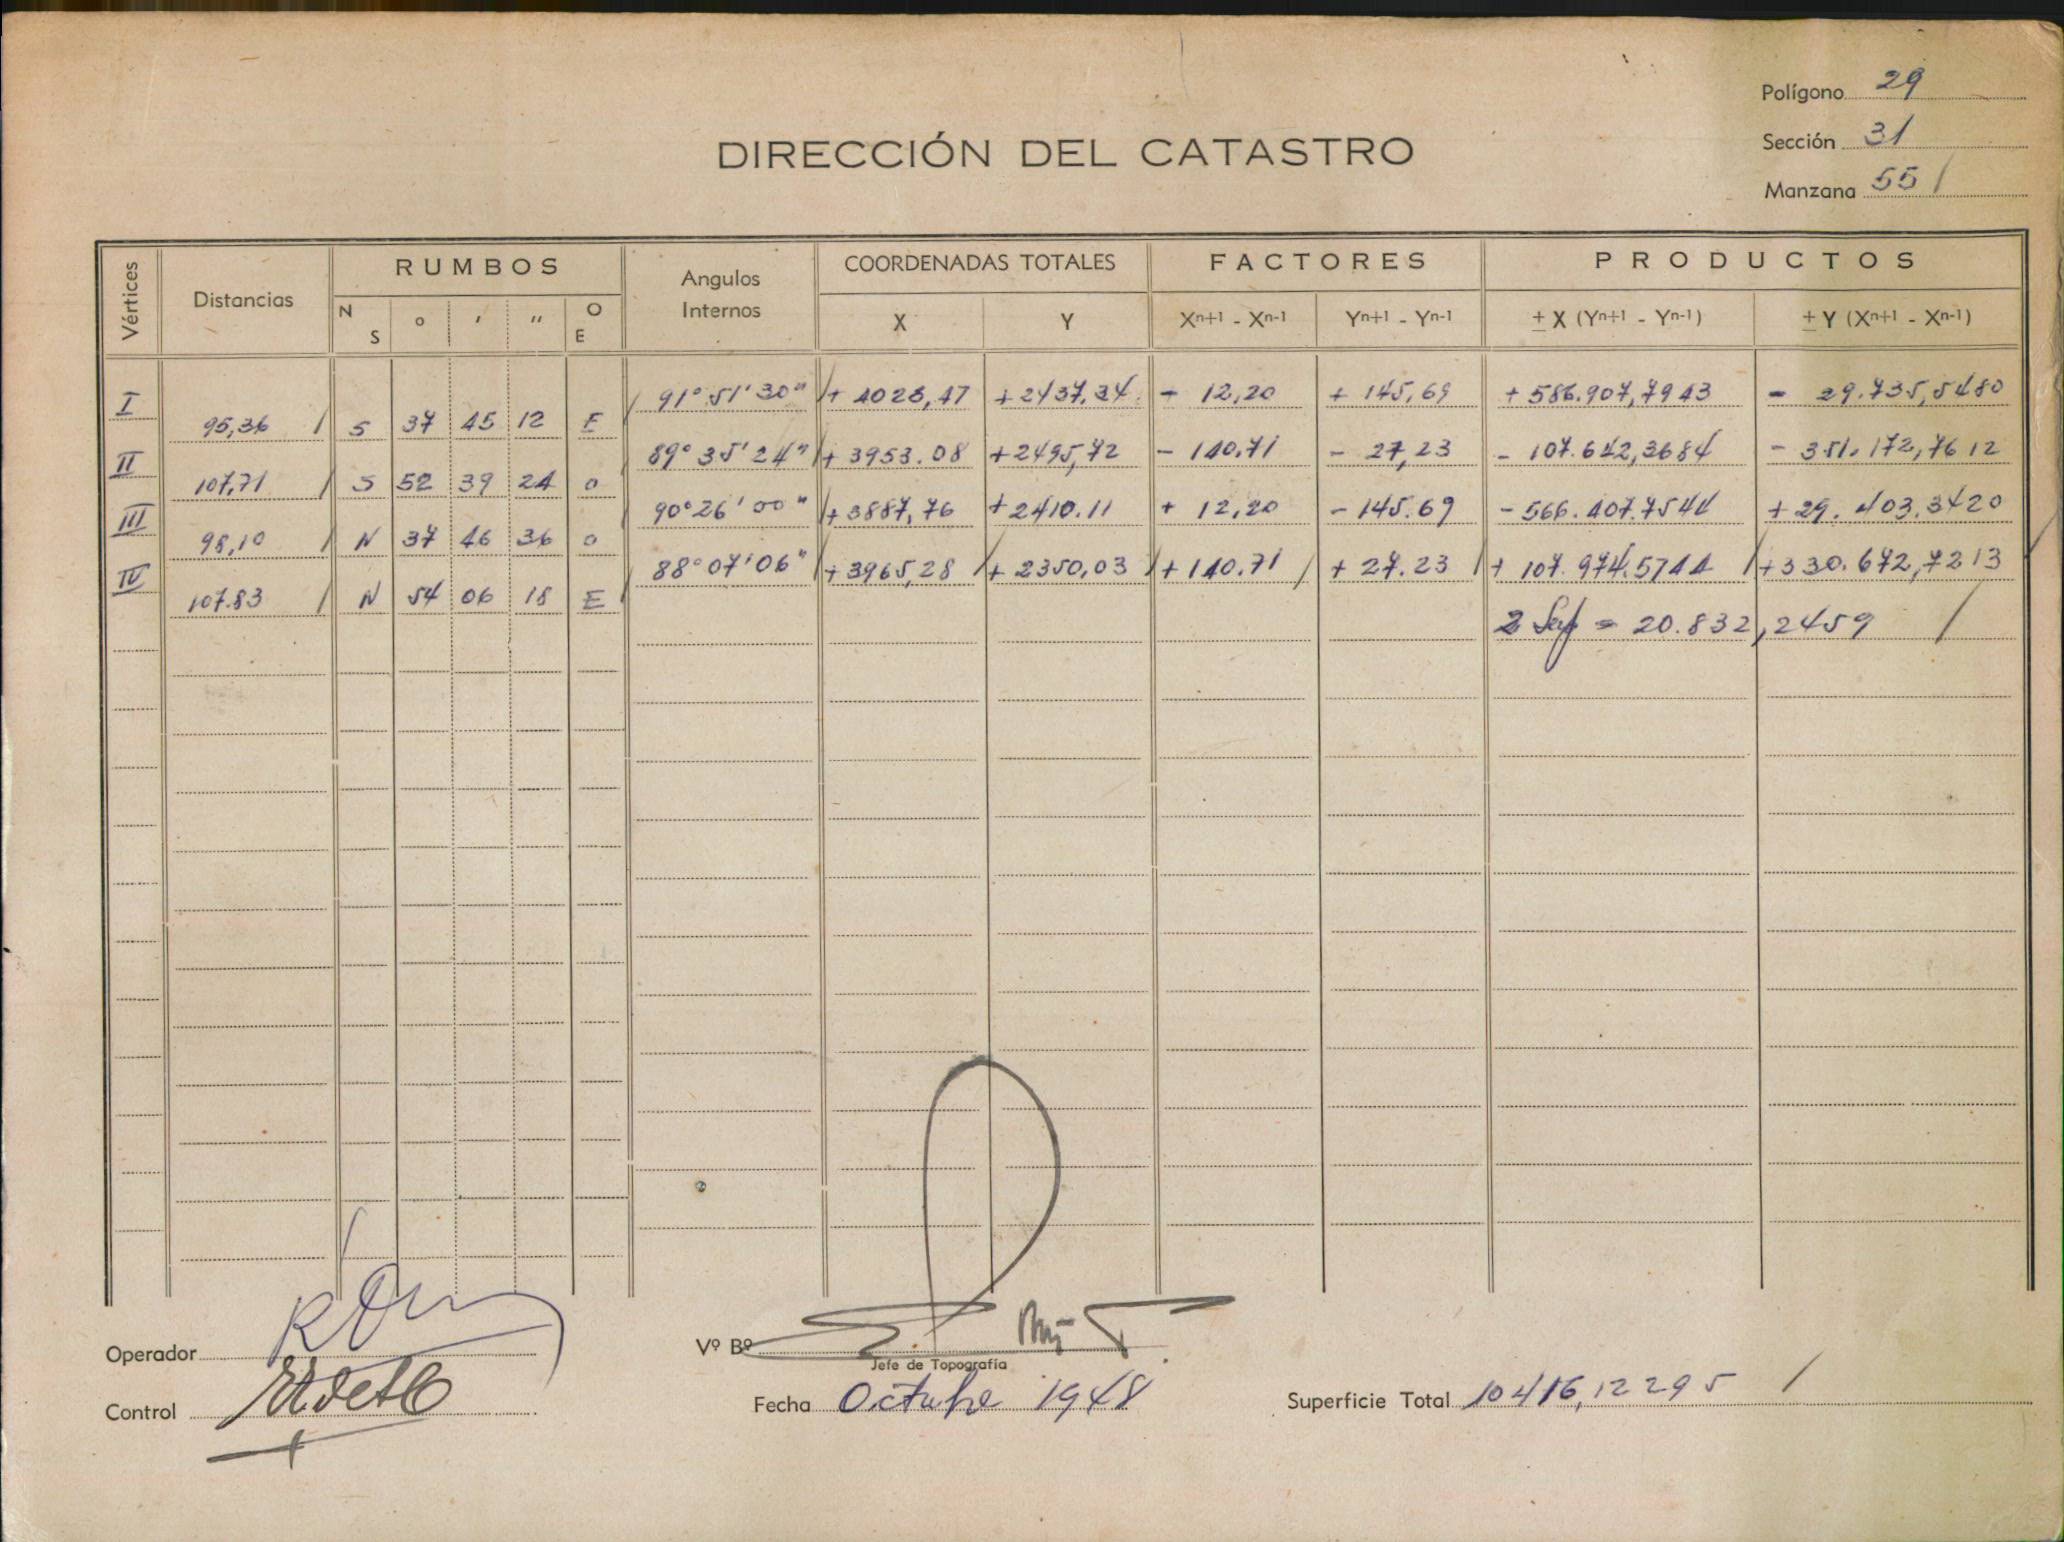 Polígono 29
Sección 31
Manzana 55 /
DIRECCIÓN DEL CATASTRO
Vértices Distancias RUMBOS Angulos Internos COORDENADAS TOTALES FACTORES PRODUCTOS
N S ° ' " O E X Y Xn+1 - Xn-1 Yn+1 - Yn-1 ± X (Yn+1 - Yn-1) ± Y (Xn+1 - Xn-1)
I 91° 51' 30" + 4028,47 + 2437,34 - 12,20 + 145,69 + 586.907,7943 - 29.735,5480
95,36 / S 37 45 12 E
II 89° 35' 24" + 3953.08 + 2495,72 - 140.71 - 27,23 - 107.642,3684 - 351.172,7612
107,71 / S 52 39 24 O
III 90° 26' 00" + 3887,76 + 2410.11 + 12,20 - 145.69 - 566.407.7544 + 29.403.3420
98,10 / N 37 46 36 O
IV 88° 07' 06" + 3965,28 / + 2350,03 / + 140.71 / + 27.23 / + 107.974.5744 / + 330.672,7213
107.83 / N 54 06 18 E
2 Sup = 20.832,2459 /
Operador
Vº Bº
Jefe de Topografía
Control
Fecha Octubre 1948
Superficie Total 10416,12295 /